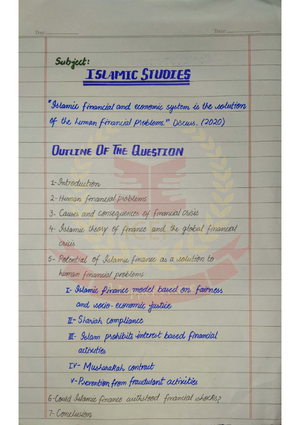 Subject:
ISLAMIC STUDIES
"Islamic financial and economic system is the solution
of the human financial problems." Discuss. (2020)
OUTLINE OF THE QUESTION
1- Introduction
2- Human financial problems
3- Causes and consequences of financial crisis
4- Islamic theory of finance and the global financial
crisis
5- Potential of Islamic finance as a solution to
human financial problems
I- Islamic finance model based on fairness
and socio-economic justice
II- Shariah compliance
III- Islam prohibits interest based financial
activities
IV- Musharakah contract
V- Prevention from fraudulent activities
6- Could Islamic finance withstood financial shocks?
7- Conclusion